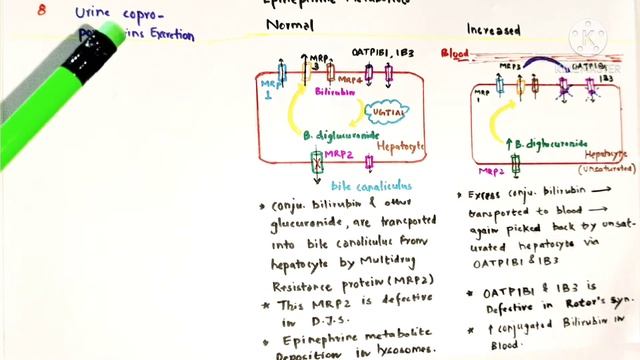 8 Urine copro-
Excretion
Normal
Increased
Blood
MRP 1
MRP 3
MRP4
OATP1B1, 1B3
Bilirubin
UGT1A1
B. diglucuronide
Hepatocyte
MRP2
bile canaliculus
MRP 1
MRP3
OATP1B1
1B3
↑ B. diglucuronide
MRP2
Hepatocyte
(unsaturated)
* Conju. bilirubin & other
glucuronide, are transported
into bile canaliculus from
hepatocyte by Multidrug
Resistance protein (MRP2)
* This MRP2 is defective
in D.J.S.
* Epinephrine metabolite
Deposition in lysosomes.
* Excess conju. bilirubin →
transported to blood →
again picked back by unsat-
urated hepatocyte via
OATP1B1 & 1B3
* OATP1B1 & 1B3 is
Defective in Rotor's syn.
* ↑ conjugated Bilirubin in
Blood.